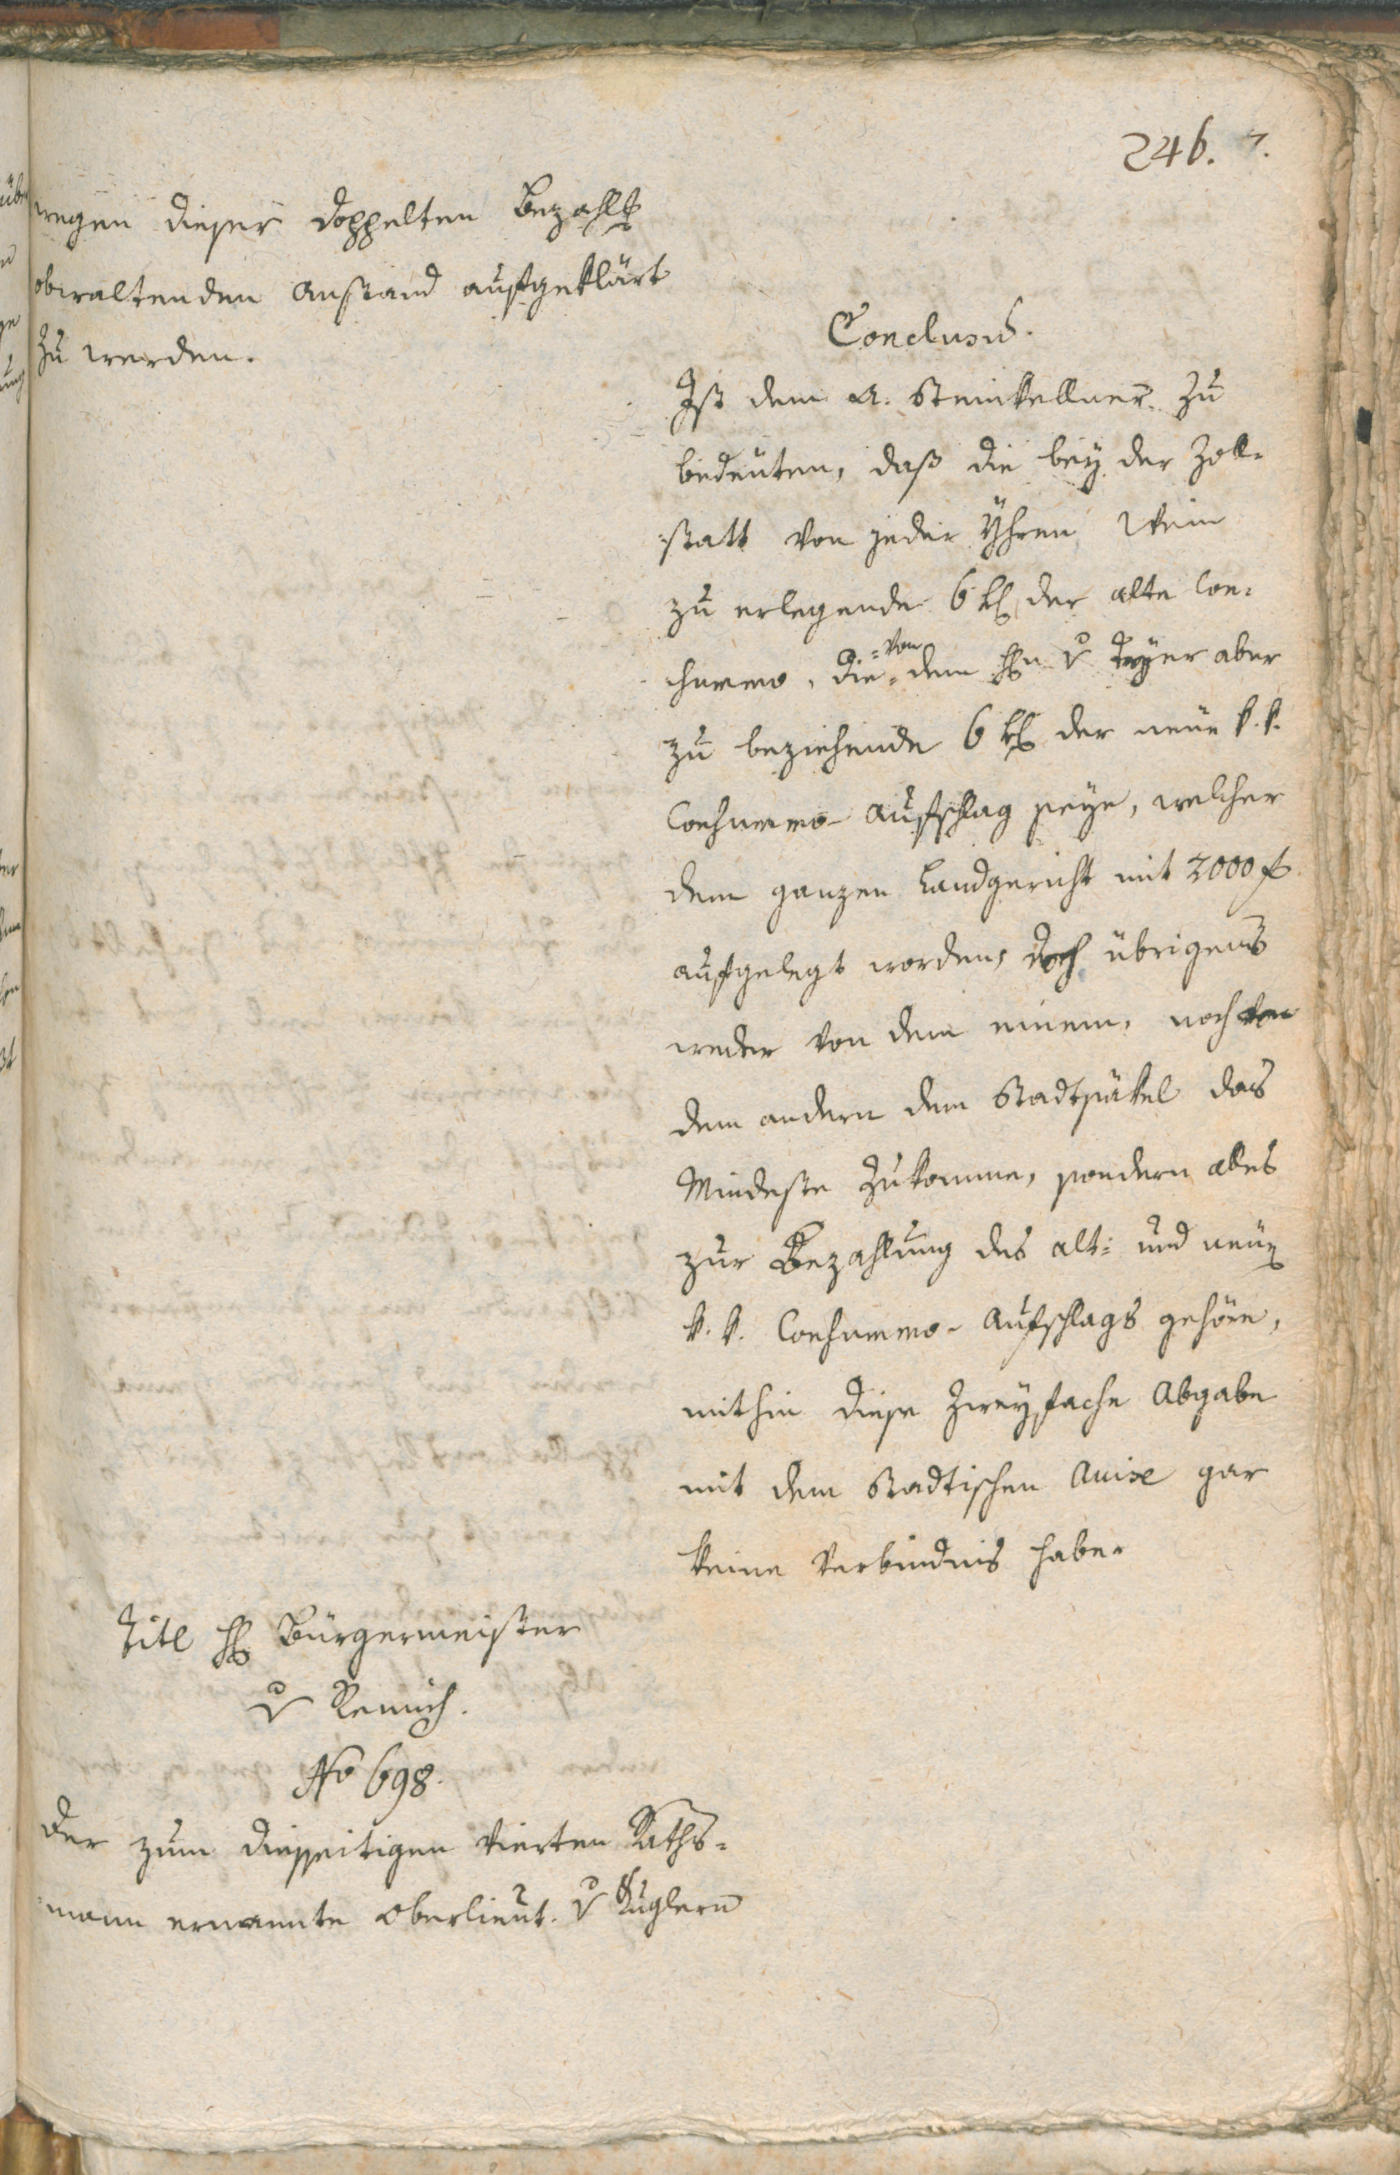 246.
wegen dieser doppelten Bezahlg
obwaltenden Anstand aufgeklärt
zu werden.
Conclusum.
Ist dem A. Steinkellner zu
bedeuten, daß die bey der Zoll-
statt von jeder Yhren Wein
zu erlegende 6 kr der alte Con-
summo, die von dem Hn v aber
zu beziehende 6 kr der neue k. k.
Consummo-Aufschlag seye, welcher
dem ganzen Landgericht mit 2000 f
aufgelegt worden, doch übrigens
weder von dem einem, noch von
dem andern dem Stadtsäkel das
Mindeste zukomme, sondern alles
zur Bezahlung des alt- und neuen
k. k. Consummo-Aufschlags gehöre,
mithin diese zweyfache Abgabe
mit dem Stadtischen Accise gar
keine Verbindnis habe.
Titl H Bürgermeister
v Remich.
No 698.
Der zum diesseitigen vierten Raths-
mann ernannte Oberlieut. v Kuglern